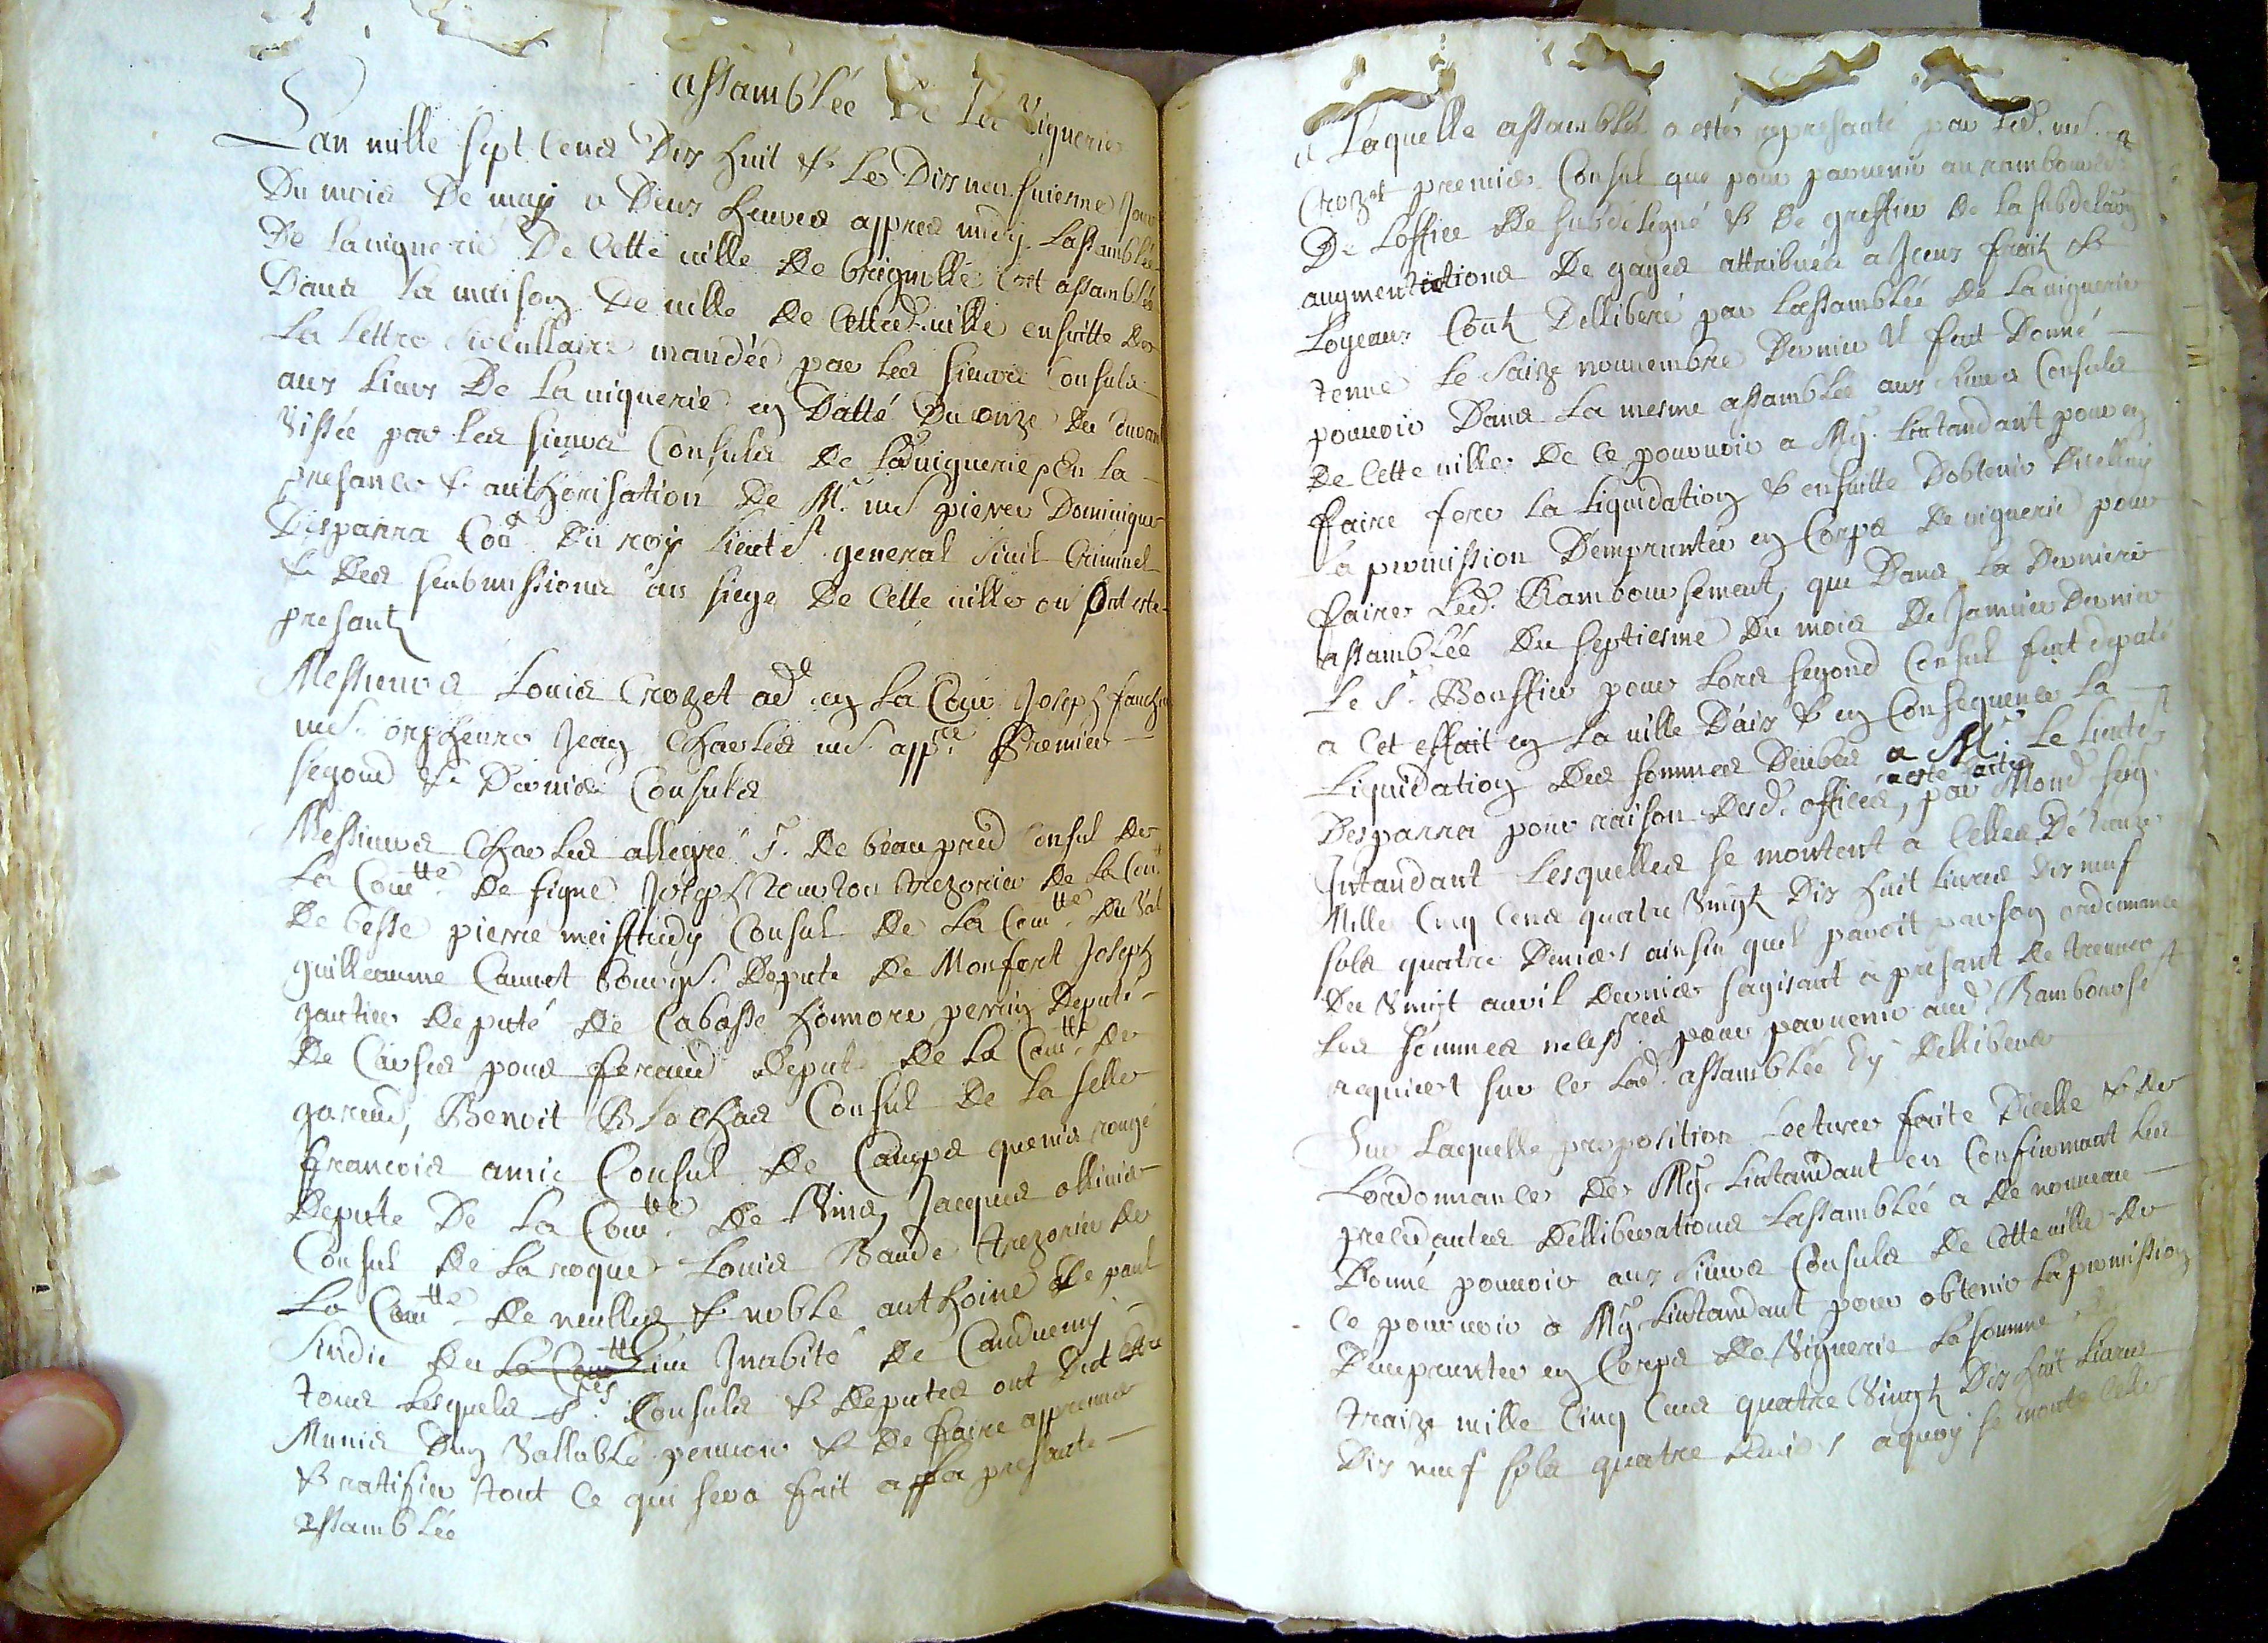 assamblée De La Viguerie
Lan mille sept Cens Dix huit & Le Dix neufviesme Jour
Du mois De may a Deux heures appres midy Lassamblée
De Laviguerie De Cette ville De brignolle sest assamblée
Dans La maison De ville De Cetted. ville ensuitte De
La Lettre Circullaire mandée par Les sieurs Consuls
aux Lieux De La viguerie en Datte Du onze Du Couran
Vissée par Les sieurs Consuls De Lad. viguerie En La
presance & authorisation De Mr. me pierre Dominique
Desparra Coner Du roy Lieutent general Civil Criminel
& Des submissions au siege De Cette ville ou ont este
presants
Messieurs Louis Crozet ad. en La Cour Joseph
me. orphevre Jean Charles me. appre. Premier
segond & Dernier Consuls
Messieurs Charles allegre Sr. De beaupred Consul De
La Comtte De signe Joseph Trezorier De La Comtt
De besse pierre Consul De La Comtte Du Val
guilleaume Cannet bourgs. Deputé De Monfort Joseph
gautier Deputé De Cabasse honnore perrin Deputé
De Carses pons feraud deputé De La Comtte De
gareoud, Benoit Blachas Consul De La selle
francois amic Consul De Camps rougé
Deputé De La Comtte De Vins, Jacques ollivier
Consul De La roque Louis Baude trezorier De
La Comtte De neulles & noble anthoine De paul
Sindic Du La Comtte Lieu Jnabité De Candumy
tous Lesquels Srs. Consuls & Deputes ont Dict estre
Munis Dun Vallable pouvoir & De faire appreuver
& ratifier tout Ce qui sera fait a La presante
assamblée
a Laquelle assamblée a esté represanté par Led. me.
Crozet premier Consul que pour parvenir au rambourct
De Loffice De subdelegué & De greffier De La subdelaõn
augmentations De gages attribuées a Jceux fraits &
Loyeaux Couts Delliberé par Lassamblée De Laviguerie
tenue Le saize novembre Dernier Il fut Donné
pouvoir Dans La mesme assamblée aux sieurs Consuls
De Cette ville De se pourvoir a Mgr. Lintandant pour en
faire fere La Liquidation & ensuitte Dobtenir Dicelluy
La permission Demprunter en Corps De viguerie pour
faire Led. Ramboursement, que Dans La Derniere
assamblée Du septiesme Du mois De Janvier Dernier
Le Sr. Bouffier pour Lors segond Consul fut deputé
a Cet effait en La ville Daix & en Consequence La
Liquidation Des sommes Deubes a Mr. Le Lieutent
Desparra pour raison Desd. offices, a esté faitte par Mond. seigr.
Jntandant Lesquelles se montent a Celles De traize
Mille Cinq Cens quatre Vingts Dix huit Livres Dix neuf
sols quatre Deniers ainsin quil paroit par son ordonnance
Du Vingt avril Dernier sagisant a presant De treuver
Les sommes necessres pour parvenir aud. Rambourset
requiert sur Ce Lad. assamblée Dy Delliberer
Sur Laquelle proposition Lecture faite Dicelle & De
Lordonnance De Mgr. Lintandant en Confirmant Les
precedantes Delliberations Lassamblée a De nouveau
Donné pouvoir aux sieurs Consuls De Cette ville De
se pourvoir a Mgr. Lintandant pour obtenir La permission
Demprunter en Corps De Viguerie La somme
traize mille Cinq Cens quatre Vingts Dix huit Livres
Dix neuf sols quatre deniers aquoy se monte Celle